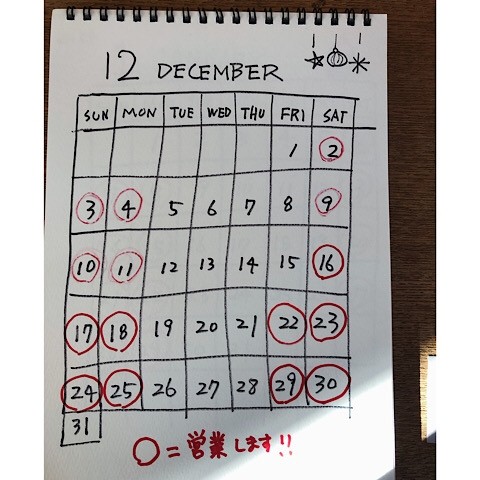 12 DECEMBER
SUN MON TUE WED THU FRI SAT
1 2
3 4 5 6 7 8 9
10 11 12 13 14 15 16
17 18 19 20 21 22 23
24 25 26 27 28 29 30
31
○=営業します!!